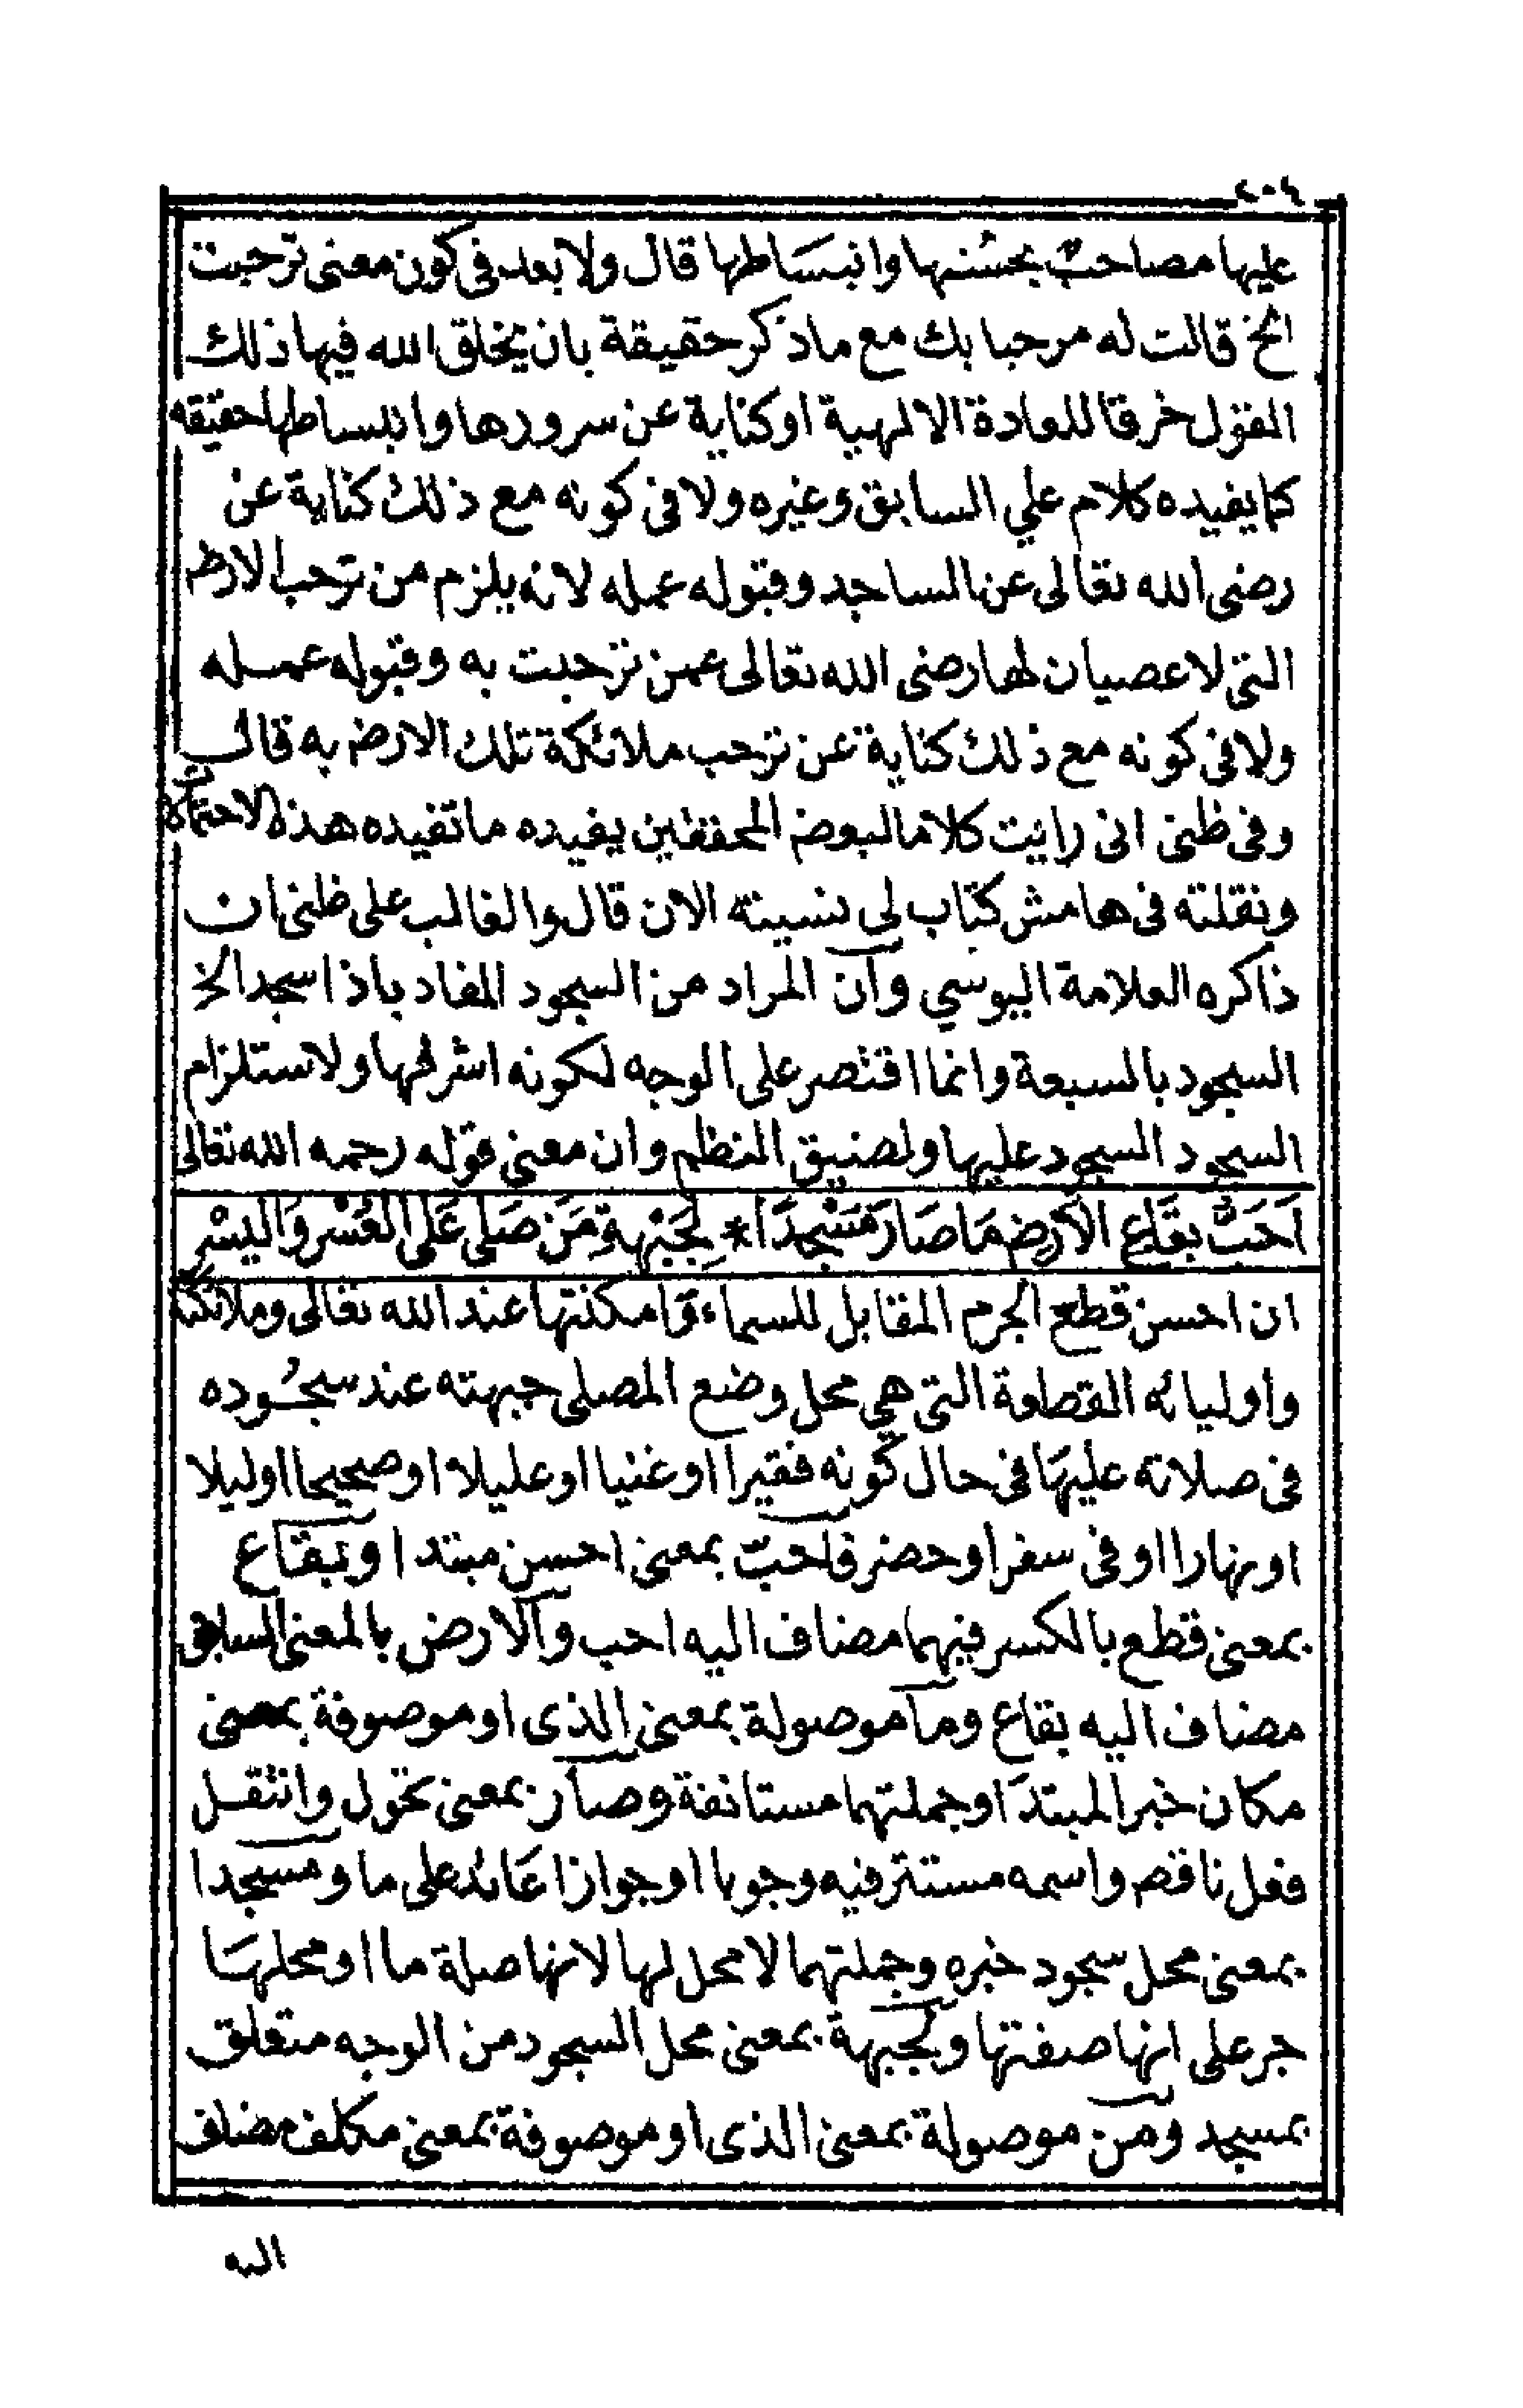 ٢٠٤
عليها مصاحبٌ بحسنها وانبساطها قال ولا بعد فى كون معنى ترحبت
الخ قالت له مرحبا بك مع ماذكر حقيقة بان يخلق الله فيها ذلك
القول خرقا للعادة الالهية اوكناية عن سرورها وانبساطها حقيقه
كما يفيده كلام علي السابق وغيره ولا فى كونه مع ذلك كناية عن
رضى الله تعالى عن الساجد وقبوله عمله لانه يلزم من ترحب الارض
التى لا عصيان لها رضى الله تعالى عمن ترحبت به وقبوله عمله
ولا فى كونه مع ذلك كناية عن ترحب ملائكة تلك الارض به قال
وفى ظنى انى رايت كلاما لبعض المحققين يفيده ما تفيده هذه الاحتمالات
ونقلته فى هامش كتاب لى نسيته الان قال والغالب على ظنى ان
ذاكره العلامة اليوسي وان المراد من السجود المفاد باذا سجد الخ
السجود بالسبعة وانما اقتصر على الوجه لكونه اشرفها ولاستلزام
السجود السجود عليها ولضيق النظم وان معنى قوله رحمه الله تعالى
اَحَبُّ بِقَاعِ الاَرْضِ مَا صَارَ مَسْجِدًا * لِجَبْهَةِ مَنْ صَلَّى عَلَى العُسْرِ وَاليُسْرِ
ان احسن قطع الجرم المقابل للسماء وامكنتها عند الله تعالى وملائكته
واوليائه القطعة التى هي محل وضع المصلى جبهته عند سجُوده
فى صلاته عليها فى حال كونه فقيرا او غنيا او عليلا او صحيحا اوليلا
اونهارا اوفى سفر اوحضر فاحبّ بمعنى احسن مبتدا وبقاع
بمعنى قطع بالكسر فيهما مضاف اليه احب والارض بالمعنى السابق
مضاف اليه بقاع وما موصولة بمعنى الذى او موصوفة بمعنى
مكان خبر المبتدَا وجملتهما مستانفة وصار بمعنى تحول وانتقل
فعل ناقص واسمه مستتر فيه وجوبا اوجوازا عَائد على ما ومسجدا
بمعنى محل سجود خبره وجملتهما لا محل لها لانها صلة ما او محلها
جر على انها صفتها ولجبهة بمعنى محل السجود من الوجه متعلق
بمسجد ومن موصولة بمعنى الذى او موصوفة بمعنى مكلف مضاف
اليه